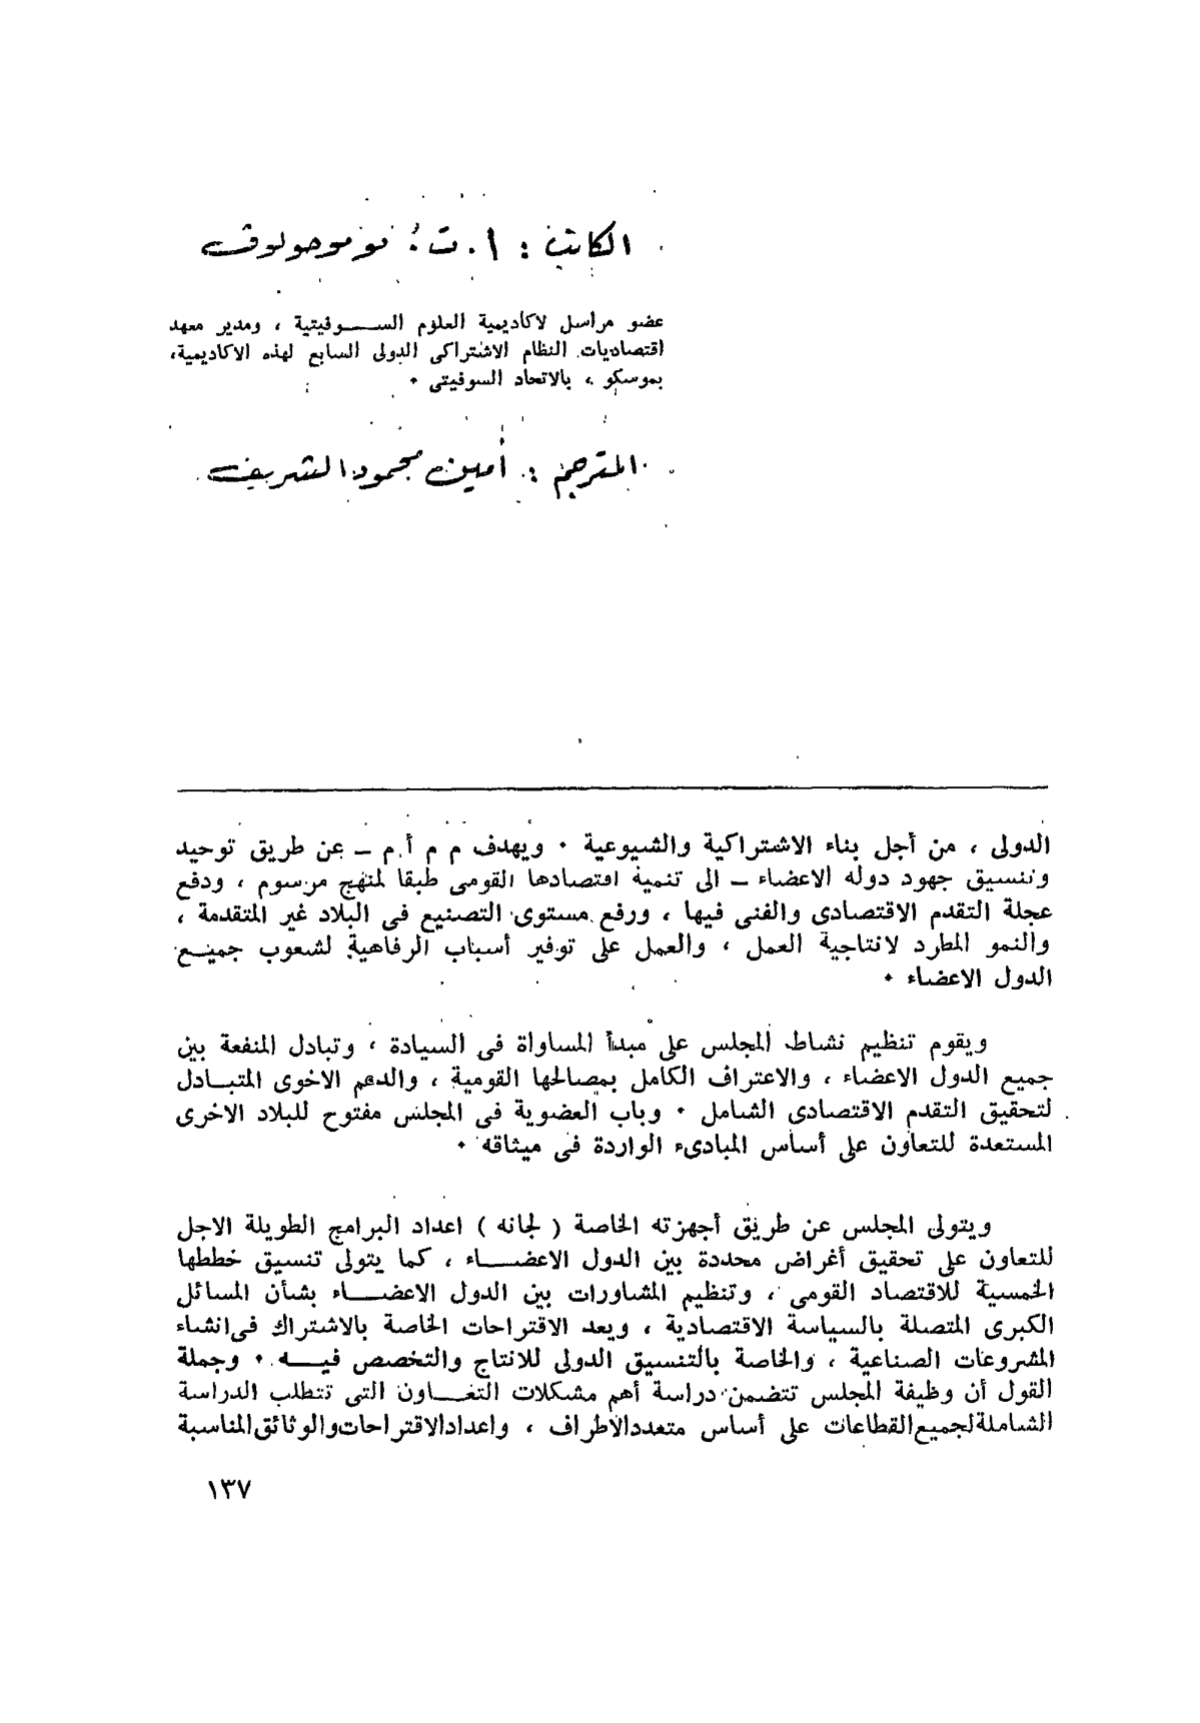 الكاتب : ا . ت . نوموجولوف
عضو مراسل لاكاديمية العلوم الســـوفيتية ، ومدير معهد
اقتصاديات النظام الاشتراكى الدولى السابع لهذه الاكاديمية،
بموسكو ، بالاتحاد السوفيتى ٠
المترجم : أمين محمود الشريف
الدولى ، من أجل بناء الاشتراكية والشيوعية ٠ ويهدف م م أ م ــ عن طريق توحيد
وتنسيق جهود دوله الاعضاء ــ الى تنمية اقتصادها القومى طبقا لمنهج مرسوم ، ودفع
عجلة التقدم الاقتصادى والفنى فيها ، ورفع مستوى التصنيع فى البلاد غير المتقدمة ،
والنمو المطرد لانتاجية العمل ، والعمل على توفير أسباب الرفاهية لشعوب جميـع
الدول الاعضاء ٠
ويقوم تنظيم نشاط المجلس على مبدأ المساواة فى السيادة ، وتبادل المنفعة بين
جميع الدول الاعضاء ، والاعتراف الكامل بمصالحها القومية ، والدعم الاخوى المتبـادل
لتحقيق التقدم الاقتصادى الشامل ٠ وباب العضوية فى المجلس مفتوح للبلاد الاخرى
المستعدة للتعاون على أساس المبادىء الواردة فى ميثاقه ٠
ويتولى المجلس عن طريق أجهزته الخاصة ( لجانه ) اعداد البرامج الطويلة الاجل
للتعاون على تحقيق أغراض محددة بين الدول الاعضـــاء ، كما يتولى تنسيق خططها
الخمسية للاقتصاد القومى ، وتنظيم المشاورات بين الدول الاعضـــاء بشأن المسائل
الكبرى المتصلة بالسياسة الاقتصادية ، ويعد الاقتراحات الخاصة بالاشتراك فى انشاء
المشروعات الصناعية ، والخاصة بالتنسيق الدولى للانتاج والتخصص فيـــه ٠ وجملة
القول أن وظيفة المجلس تتضمن دراسة أهم مشكلات التعـــاون التى تتطلب الدراسة
الشاملة لجميع القطاعات على أساس متعدد الاطراف ، واعداد الاقتراحات والوثائق المناسبة
١٣٧